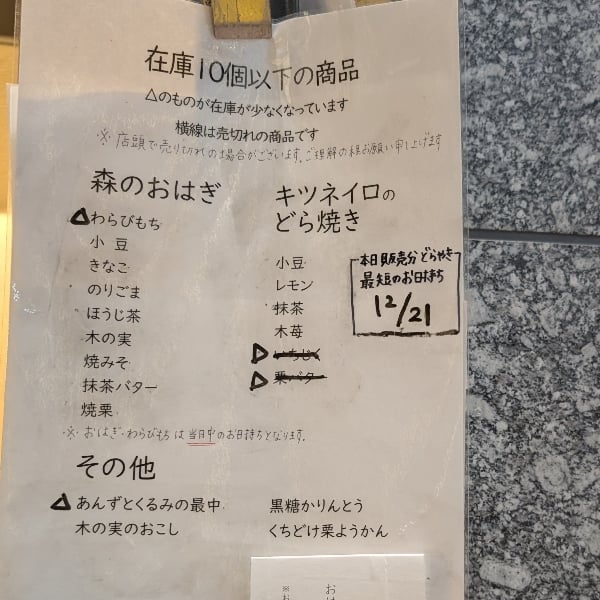 在庫10個以下の商品
△のものが在庫が少なくなっています
横線は売切れの商品です
※店頭で売り切れの場合がございます。ご理解の程お願い申し上げます
森のおはぎ
△わらびもち
小豆
きなこ
のりごま
ほうじ茶
木の実
焼みそ
抹茶バター
焼栗
※おはぎ・わらびもちは当日中のお日持ちとなります。
キツネイロの
どら焼き
小豆
レモン
抹茶
木苺
△いちじく
△栗バター
本日販売分どらやき
最短のお日持ち
12/21
その他
△あんずとくるみの最中
木の実のおこし
黒糖かりんとう
くちどけ栗ようかん